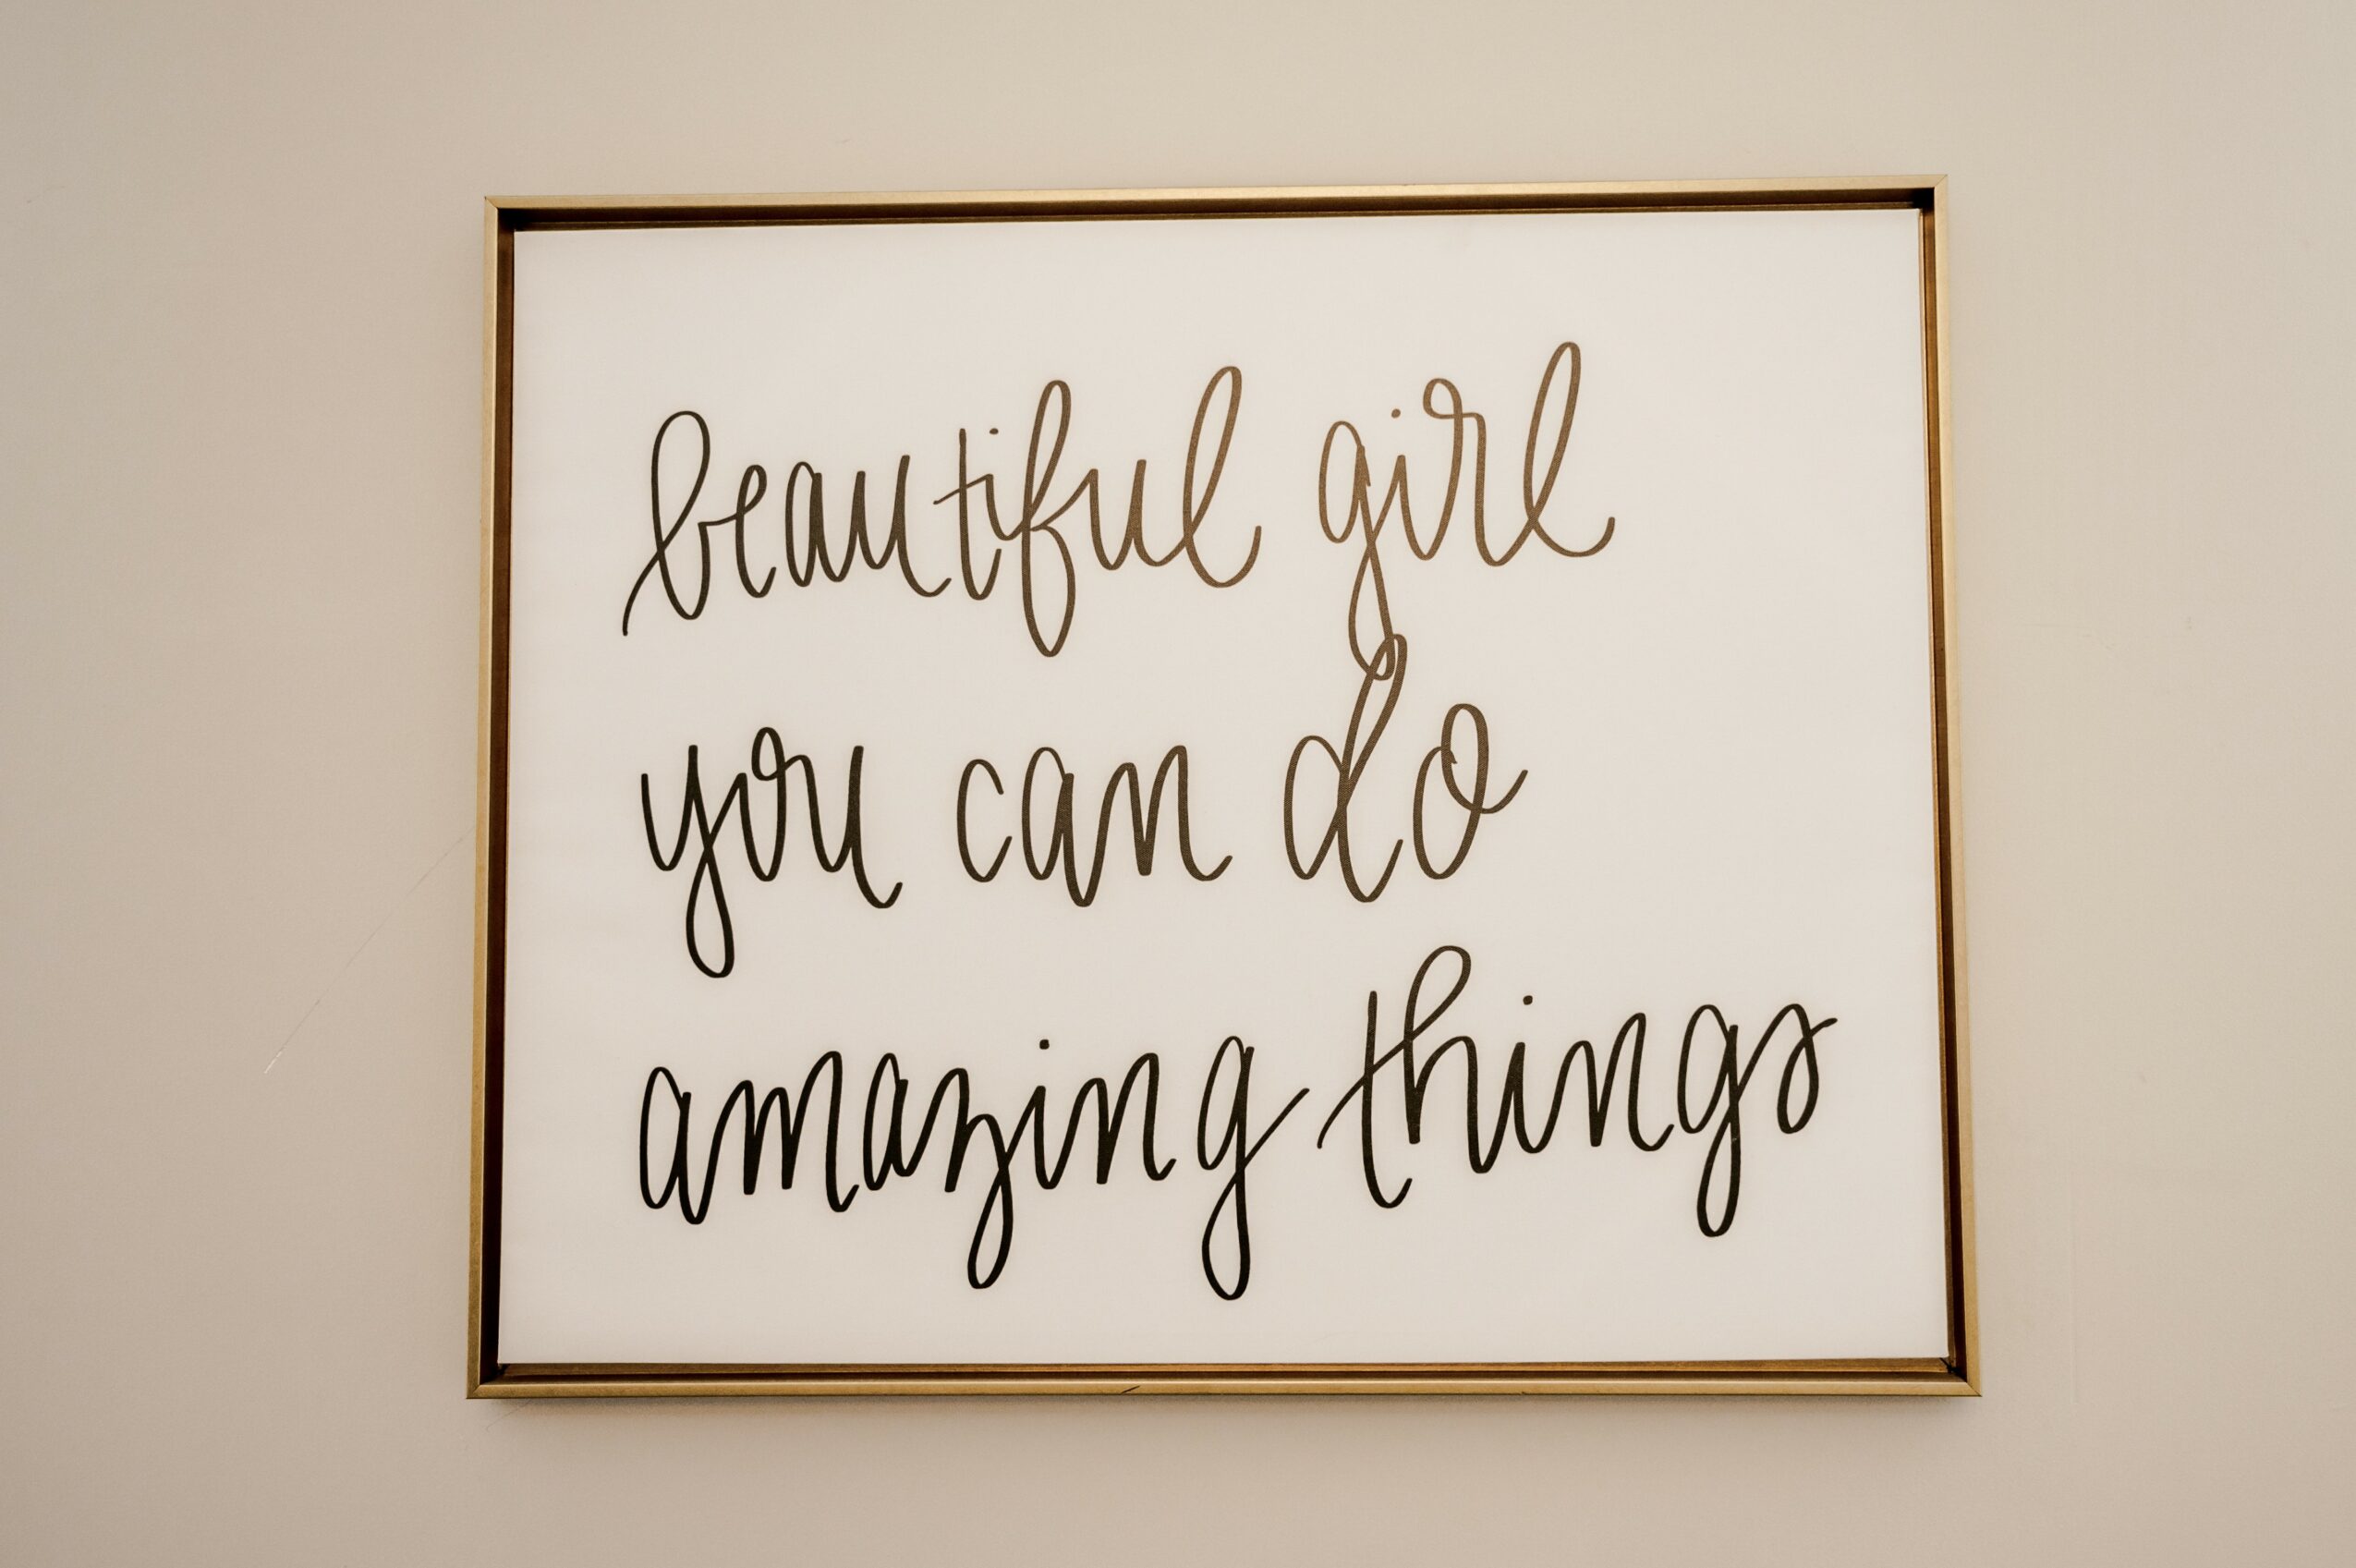 beautiful girl
you can do
amazing things